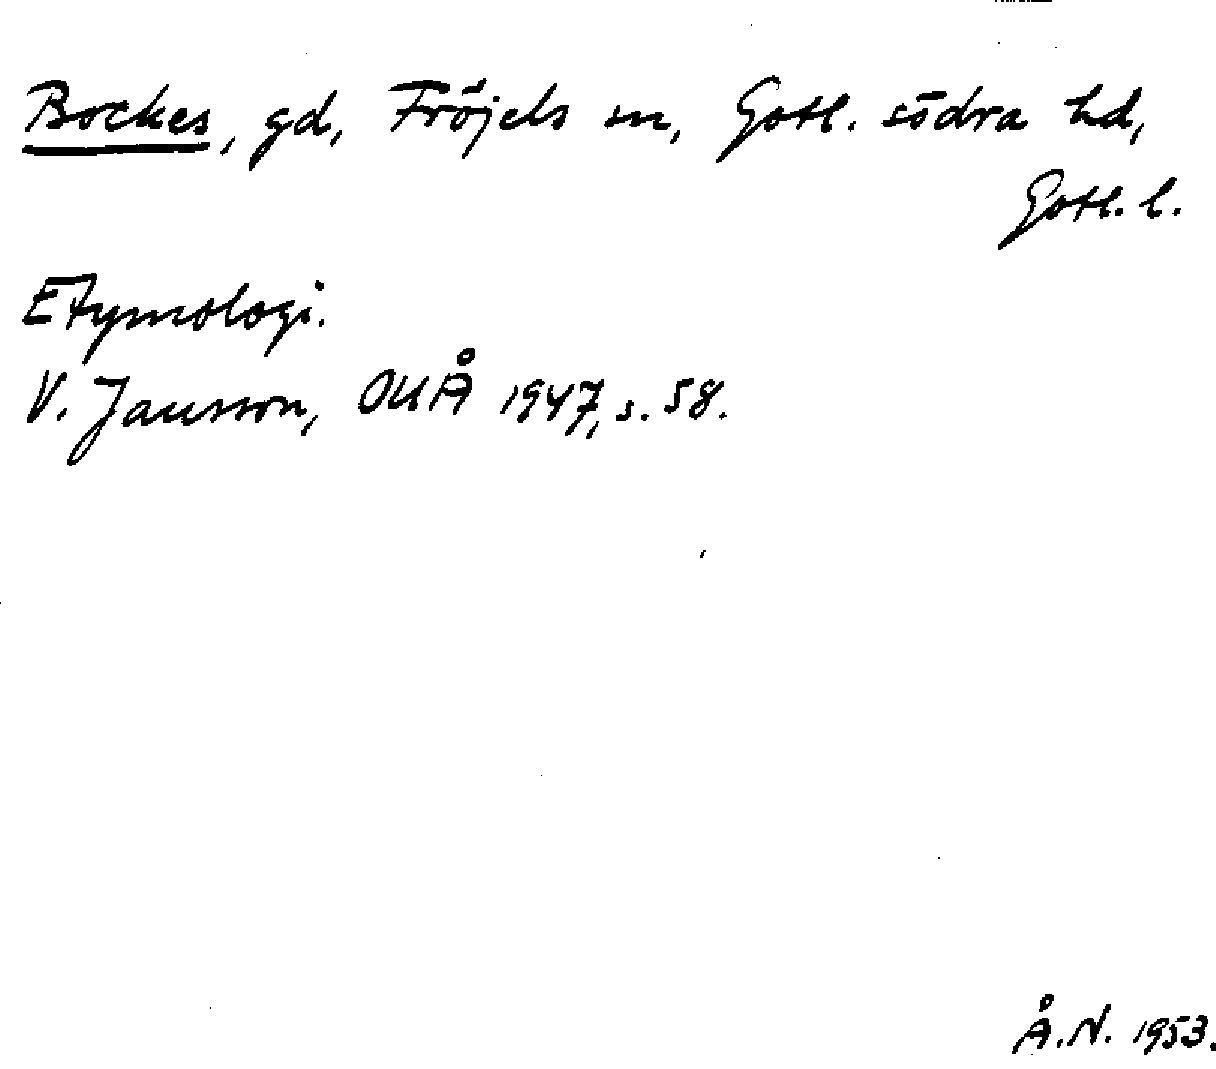 Bockes, gd, Fröjels sn, Gotl. södra hd,
Gotl. l.
Etymologi.
V. Jansson, OUÅ 1947, s. 58.
Å.N. 1953.